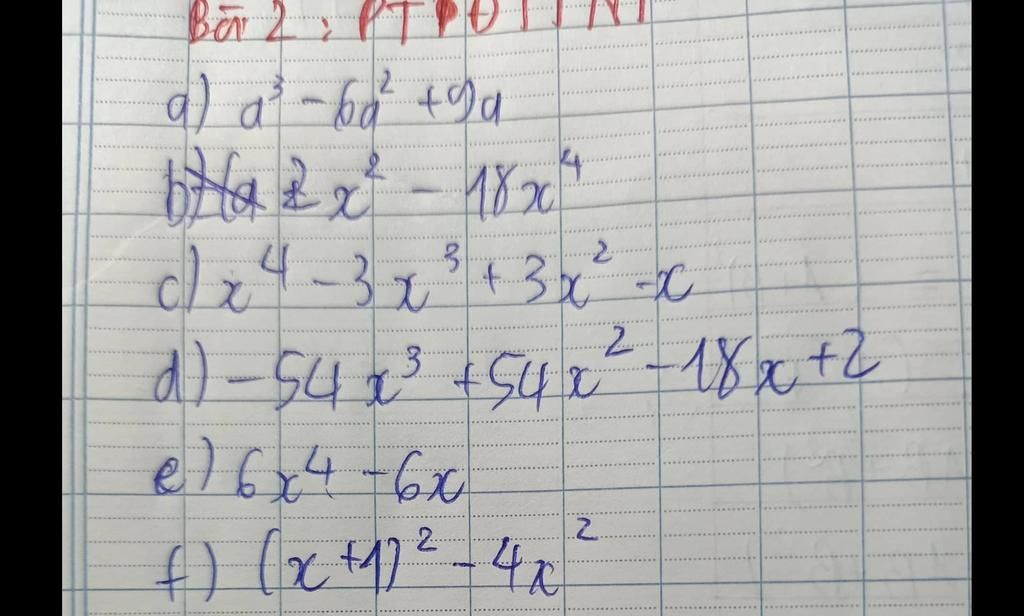 Bài 2: PTPĐTTNT
a) a³ - 6a² + 9a
b) 2x² - 18x⁴
c) x⁴ - 3x³ + 3x² - x
d) -54x³ + 54x² - 18x + 2
e) 6x⁴ - 6x
f) (x+1)² - 4x²